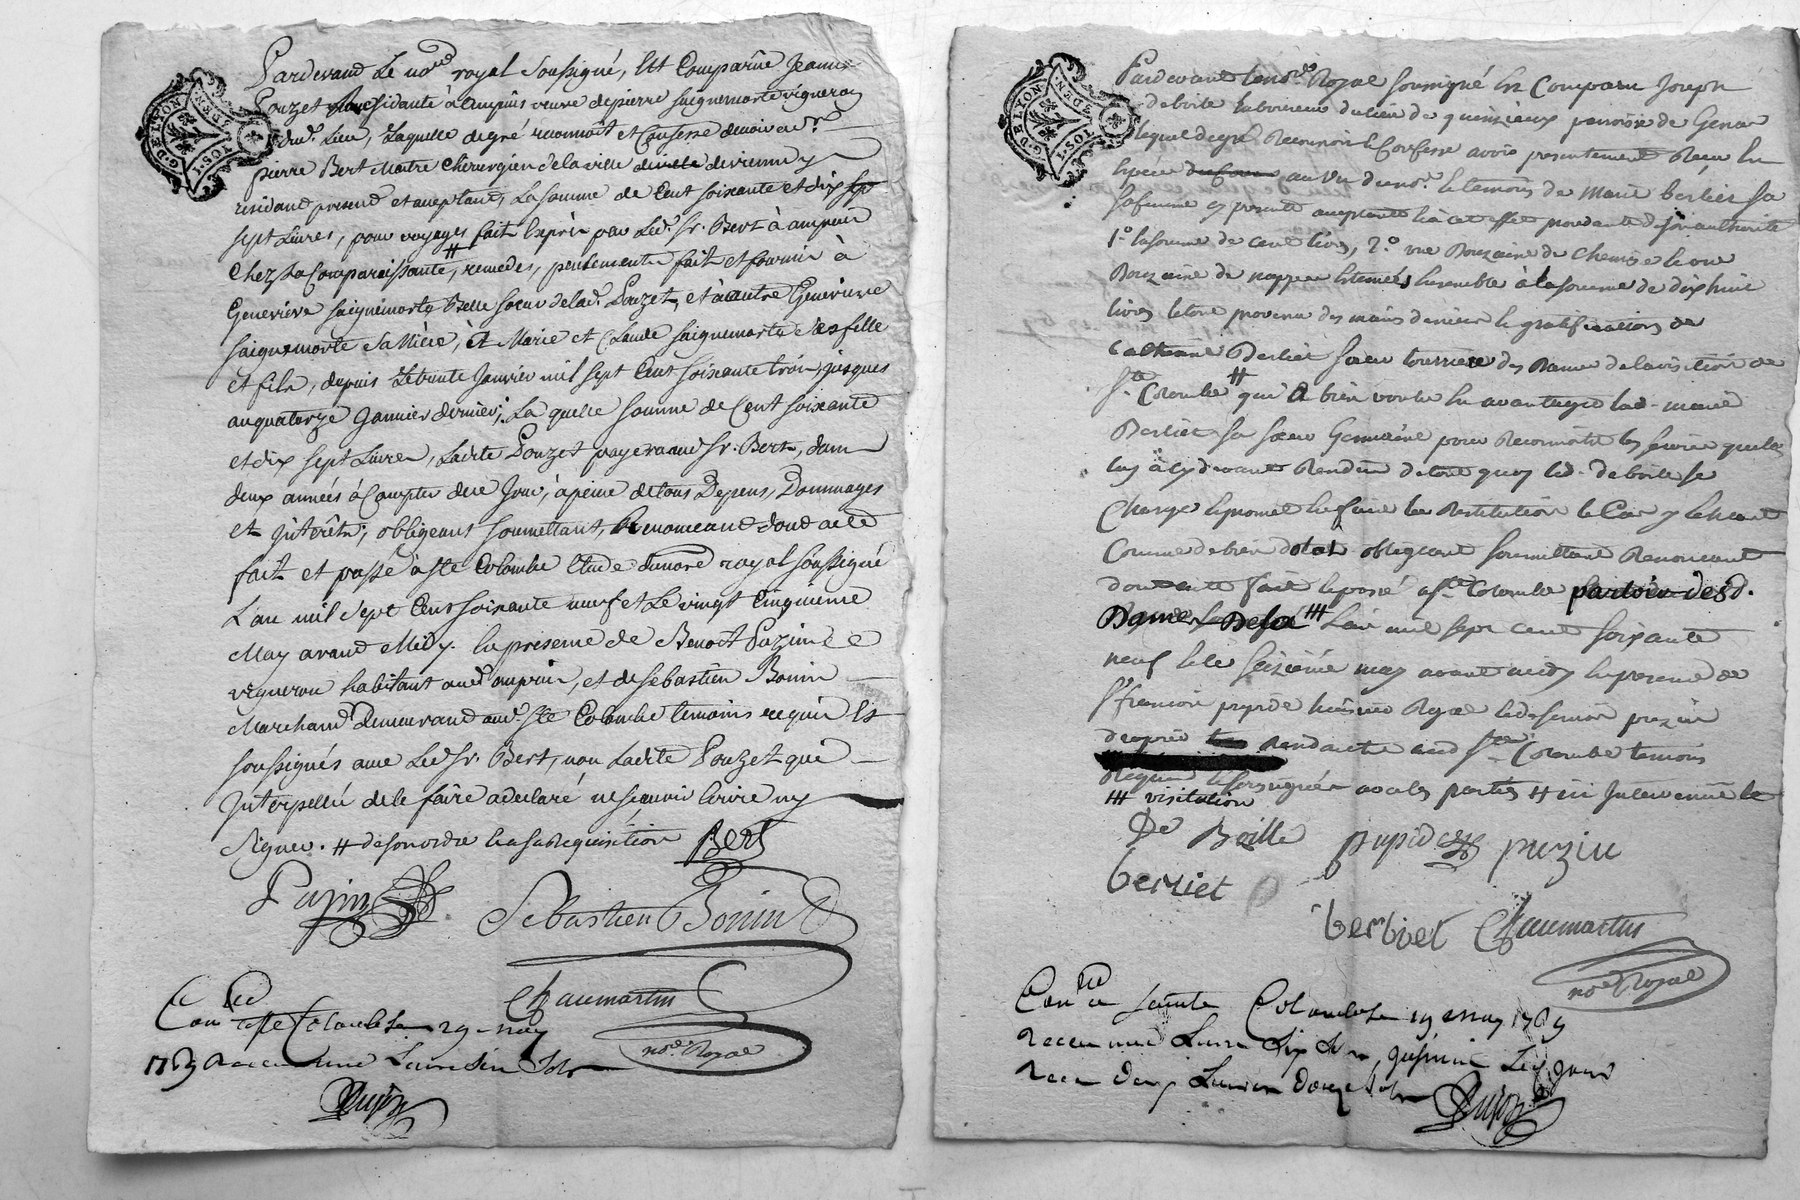 Pardevand Le no.re royal soussigné, Est Comparüe Jeanne
Pouzet residante à ampuis veuve de pierre saignemorte vigneron
dud. Lieu, Laquelle de gré reconnoit et Confesse devoir au Sr.
pierre Bert Maitre Chirurgien de la ville de vienne y
residand present et acceptant, La somme de Cent soixante et dix sept
sept Livres, pour voyages fait Exprès par Led. Sr. Bert à ampuis
Chez La Comparaissante, ⧺ remedes, pensements fait et fournis à
Genevieve saignemorte Belle soeur de lad. Pouzet, et à autre Genevieve
saignemorte sa Niéce, et Marie et Claude saignemorte ses fille
et fils, depuis Le trente Janvier mil sept Cent soixante trois jusques
au quatorze Janvier dernier; La quelle somme de Cent soixante
et dix sept Livres, Ladite Pouzet payera aud Sr. Bert, dans
deux années à Compter de ce Jour, à peine de tous Depens, Dommages
et Interêts, obligeant soumettant, Renonceand dond acte
fait et passé à Ste Colombe Etude du no.re royal soussigné
L'an mil sept Cent soixante neuf et Le vingt Cinquieme
May avand Midy. En presence de Benoit Puzin
vigneron habitant aud. ampuis, et de sebastien Bonin
Marchand Demeurand aud. Ste Colombe temoins requis Et
soussignés avec Led Sr. Bert, non Ladite Pouzet qui
Interpellée de le faire a declaré ne sçavoir Ecrire ny
signer. ⧺ de son ordre Et a sa Requisition Bert
Puzin
Sebastien Bonin
Chaumartin
no.re Royal
Con.lé a Ste Colombe Le 29 may
1769 Recu une Livre six Sols
G. DE LYON
Pardevant le no.re Royal soussigné Est Comparu Joseph
deboile laboureur du lieu de quinsieux paroisse de Genas
lequel de gré Reconnoit & Confesse avoir presentement Reçu En
Espéce au vu du no.re & temoins de Marie berliet sa
sa femme y presente acceptante Et à cet effet procedante de son authorité
1.o la somme de cent livres, 2.o une Douzaine de Chemise & une
Douzaine de nappes Estimées Ensemble à la somme de dix huit
livres le tout provenu des mains deniers & gratifications de
Catherine Berliet soeur tourriere des Dames de la visitation de
Ste Colombe ⧺ qui A bien voulu En avantager lad. marie
Berliet sa soeur Germaine pour Reconnoitre les services quelle
luy à cy devant Rendus de tout quoy led. deboile se
Charge & promet En faire la Restitution le Cas y Echeant
Comme de bien dotal obligeant soumettant Renonceant
dont acte fait & passé a Ste Colombe parloir des d.
Dames L'an mil sept cent soixante
neuf & le seizième may avant midy En presence de
Sr françois pupid huissier Royal & de puzin
aud Ste Colombe temoins
Requis & soussignés avec les parties ⧺ ici Intervenüe
visitation
De Boille pupid puzin
berliet
berliet Chaumartin
no.re Royal
Con.lé a sainte Colombe Le 19 may 1769
Recu une Livre dix sols, Insinué Led. Jour
Recu deux Livres douze sols
G. DE LYON